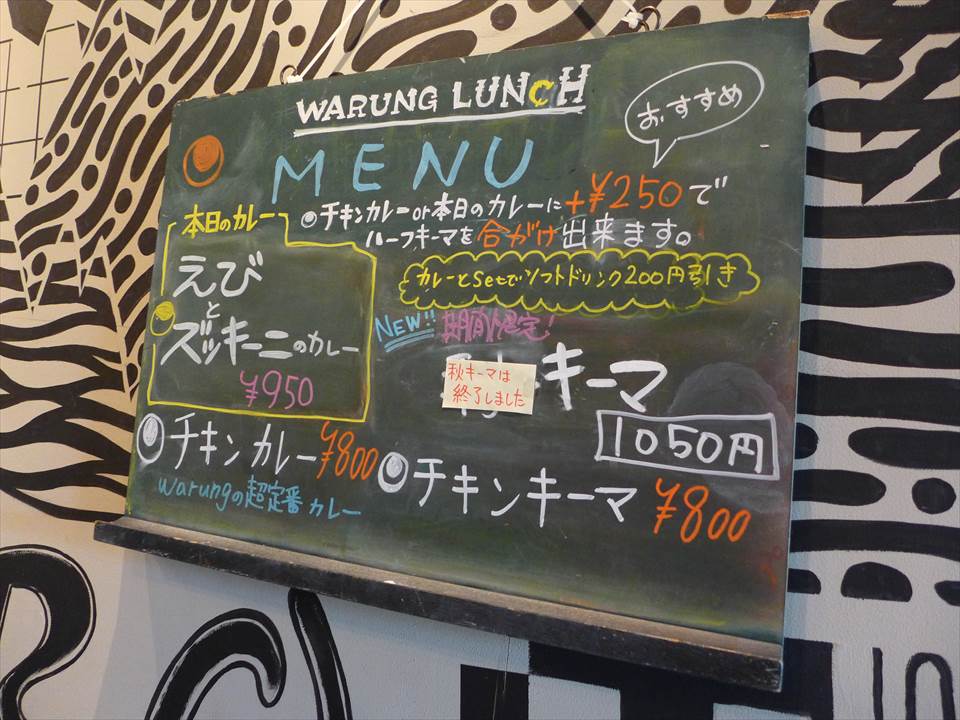 WARUNG LUNCH
MENU
おすすめ
チキンカレーor本日のカレーに+¥250で
ハーフキーマを合がけ出来ます。
カレーとSetでソフトドリンク200円引き
本日のカレー
えび
と
ズッキーニのカレー
¥950
NEW!! 期間限定!
キーマ
秋キーマは
終了しました
1050円
チキンカレー ¥800
warungの超定番カレー
チキンキーマ ¥800